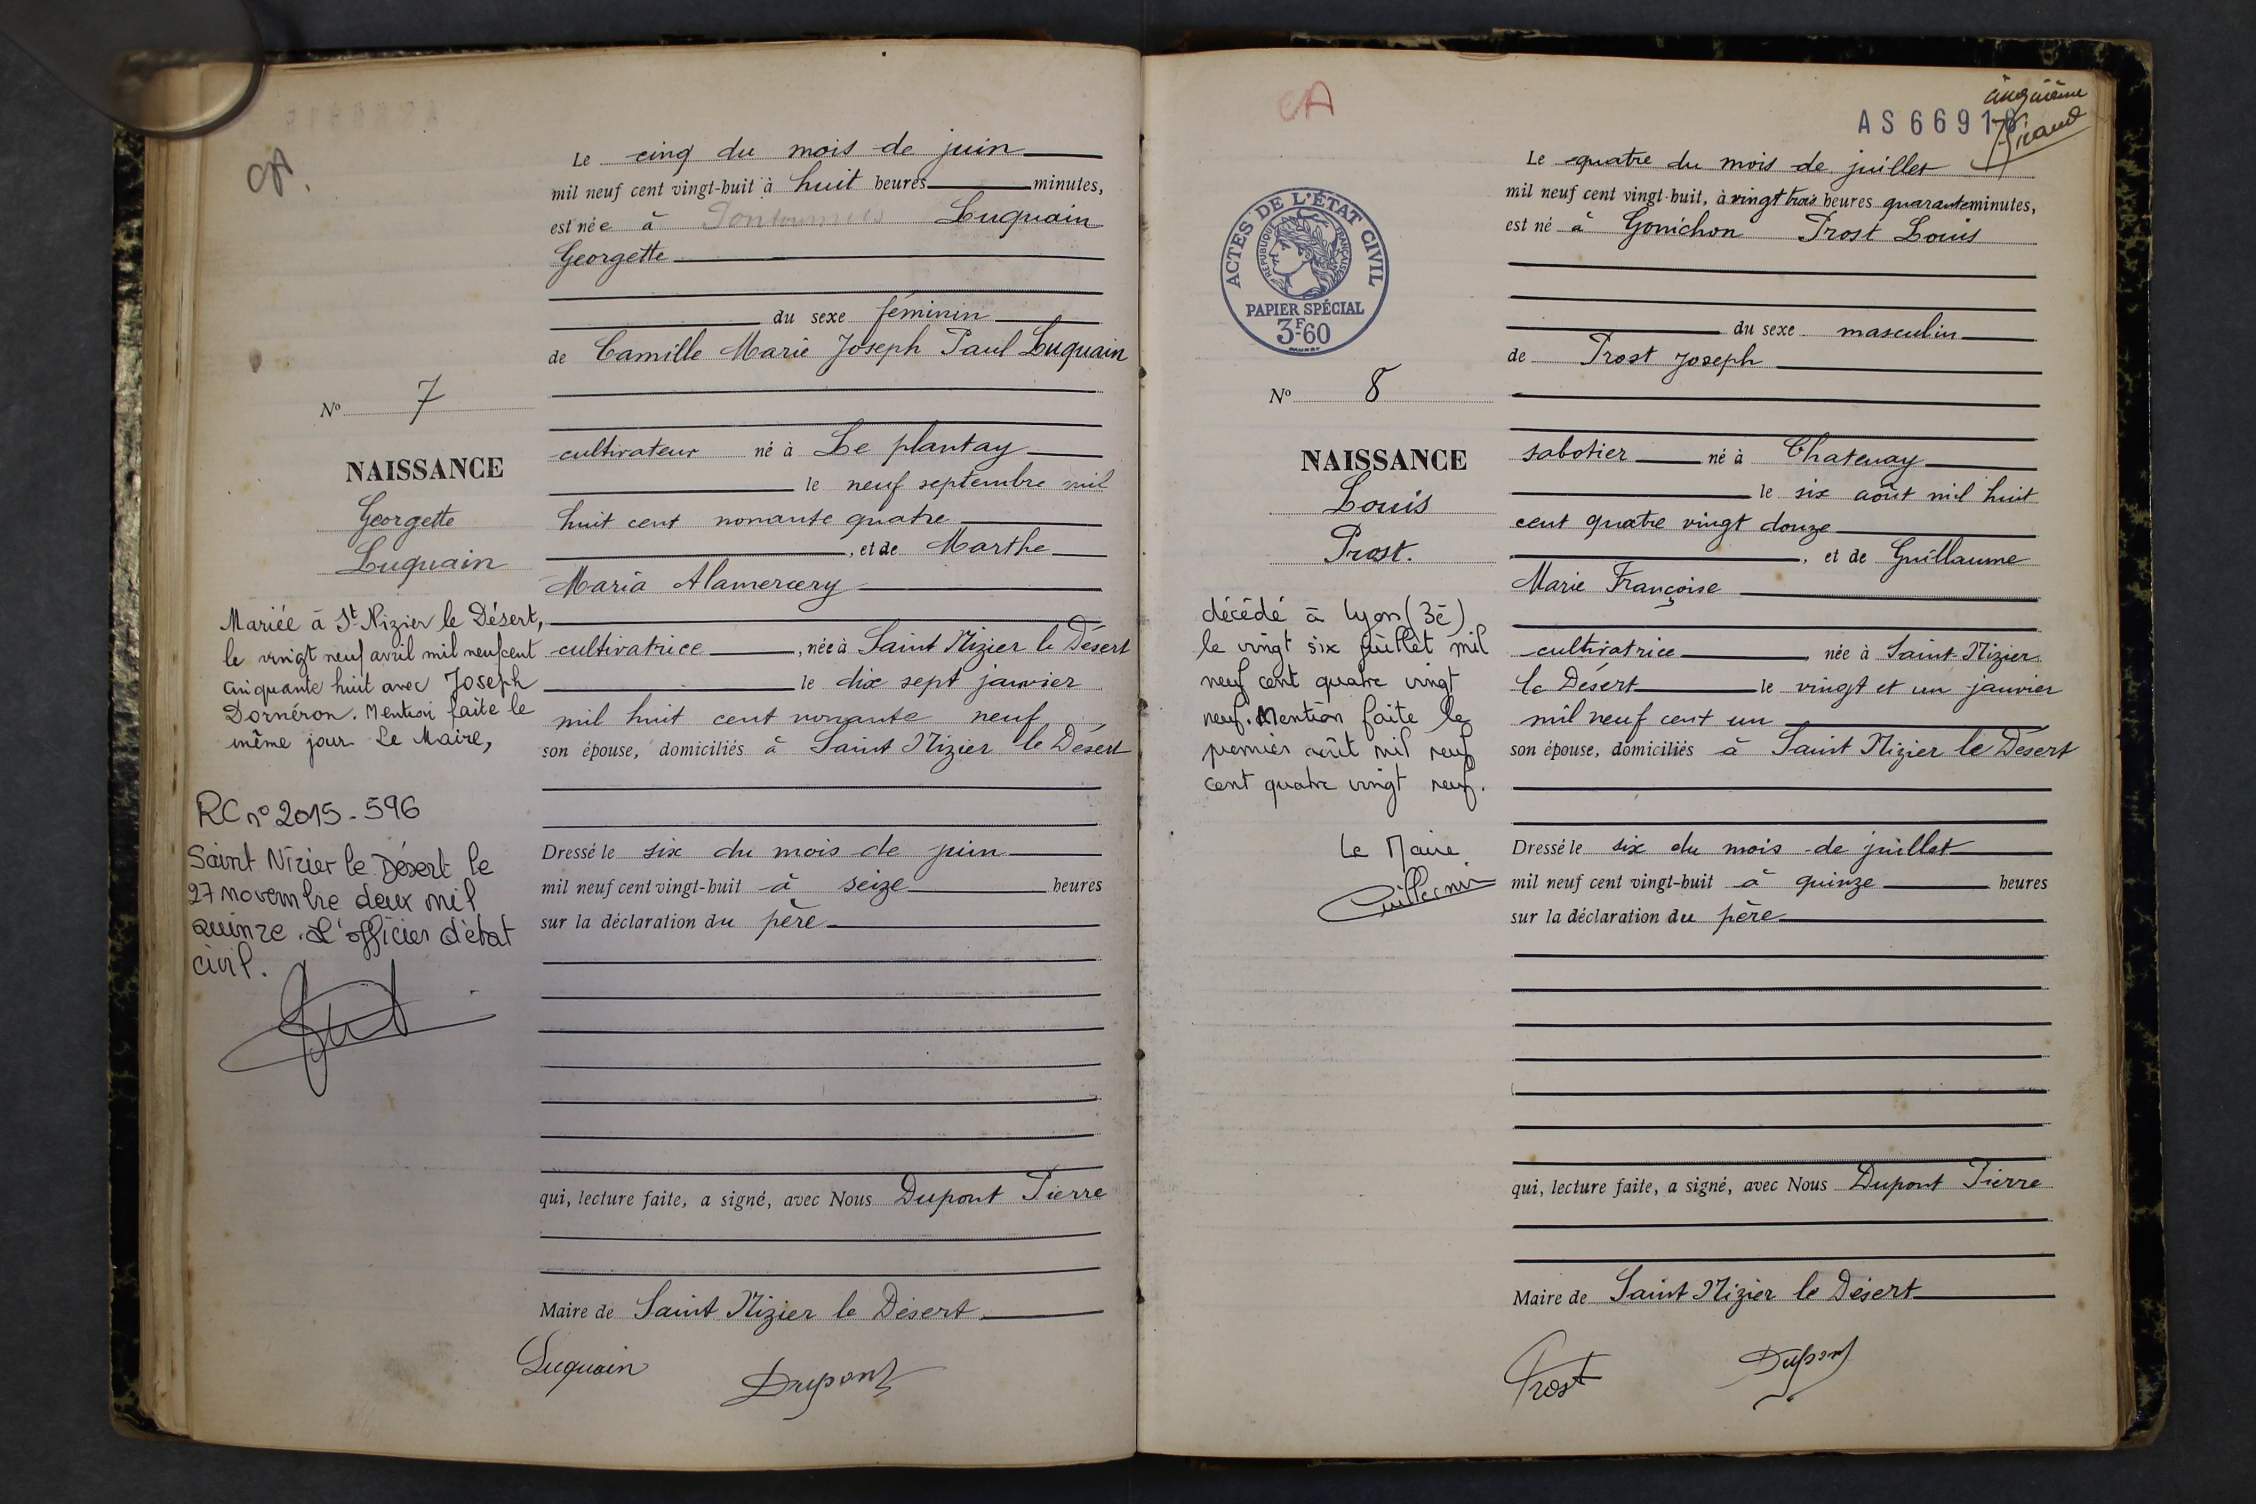 CA.
Le cinq du mois de juin
mil neuf cent vingt-huit à huit heures minutes,
est née à Luquain
Georgette
du sexe féminin
de Camille Marie Joseph Paul Luquain
No 7
NAISSANCE
Georgette
Luquain
cultivateur né à Le plantay
le neuf septembre mil
huit cent nonante quatre
, et de Marthe
Maria Alamercery
cultivatrice , née à Saint Nizier le Désert
le dix sept janvier
mil huit cent nonante neuf
son épouse, domiciliés à Saint Nizier le Désert
Mariée à St Nizier le Désert,
le vingt neuf avril mil neuf cent
cinquante huit avec Joseph
Dornéron. Mention faite le
même jour Le Maire,
RC n° 2015-596
Saint Nizier le Désert le
27 novembre deux mil
quinze. L'officier d'état
civil.
Dressé le six du mois de juin
mil neuf cent vingt-huit à seize heures
sur la déclaration du père
qui, lecture faite, a signé, avec Nous Dupont Pierre
Maire de Saint Nizier le Désert
Luquain Dupont
CA
AS 6691
Le quatre du mois de juillet
mil neuf cent vingt-huit, à vingt trois heures quarante minutes,
est né à Gonichon Prost Louis
du sexe masculin
de Prost Joseph
ACTES DE L'ÉTAT CIVIL
RÉPUBLIQUE FRANÇAISE
PAPIER SPÉCIAL
3F-60
No 8
NAISSANCE
Louis
Prost.
sabotier né à Chatenay
le six août mil huit
cent quatre vingt douze
, et de Guillaume
Marie Françoise
cultivatrice née à Saint-Nizier
le Désert le vingt et un janvier
mil neuf cent un
son épouse, domiciliés à Saint Nizier le Désert
décédé à Lyon (3è)
le vingt six juillet mil
neuf cent quatre vingt
neuf. Mention faite le
premier août mil neuf
cent quatre vingt neuf.
Le Maire
Dressé le six du mois de juillet
mil neuf cent vingt-huit à quinze heures
sur la déclaration du père
qui, lecture faite, a signé, avec Nous Dupont Pierre
Maire de Saint Nizier le Désert
Prost Dupont